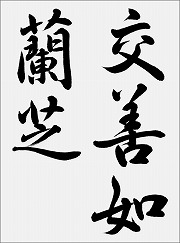 交善如
蘭芝